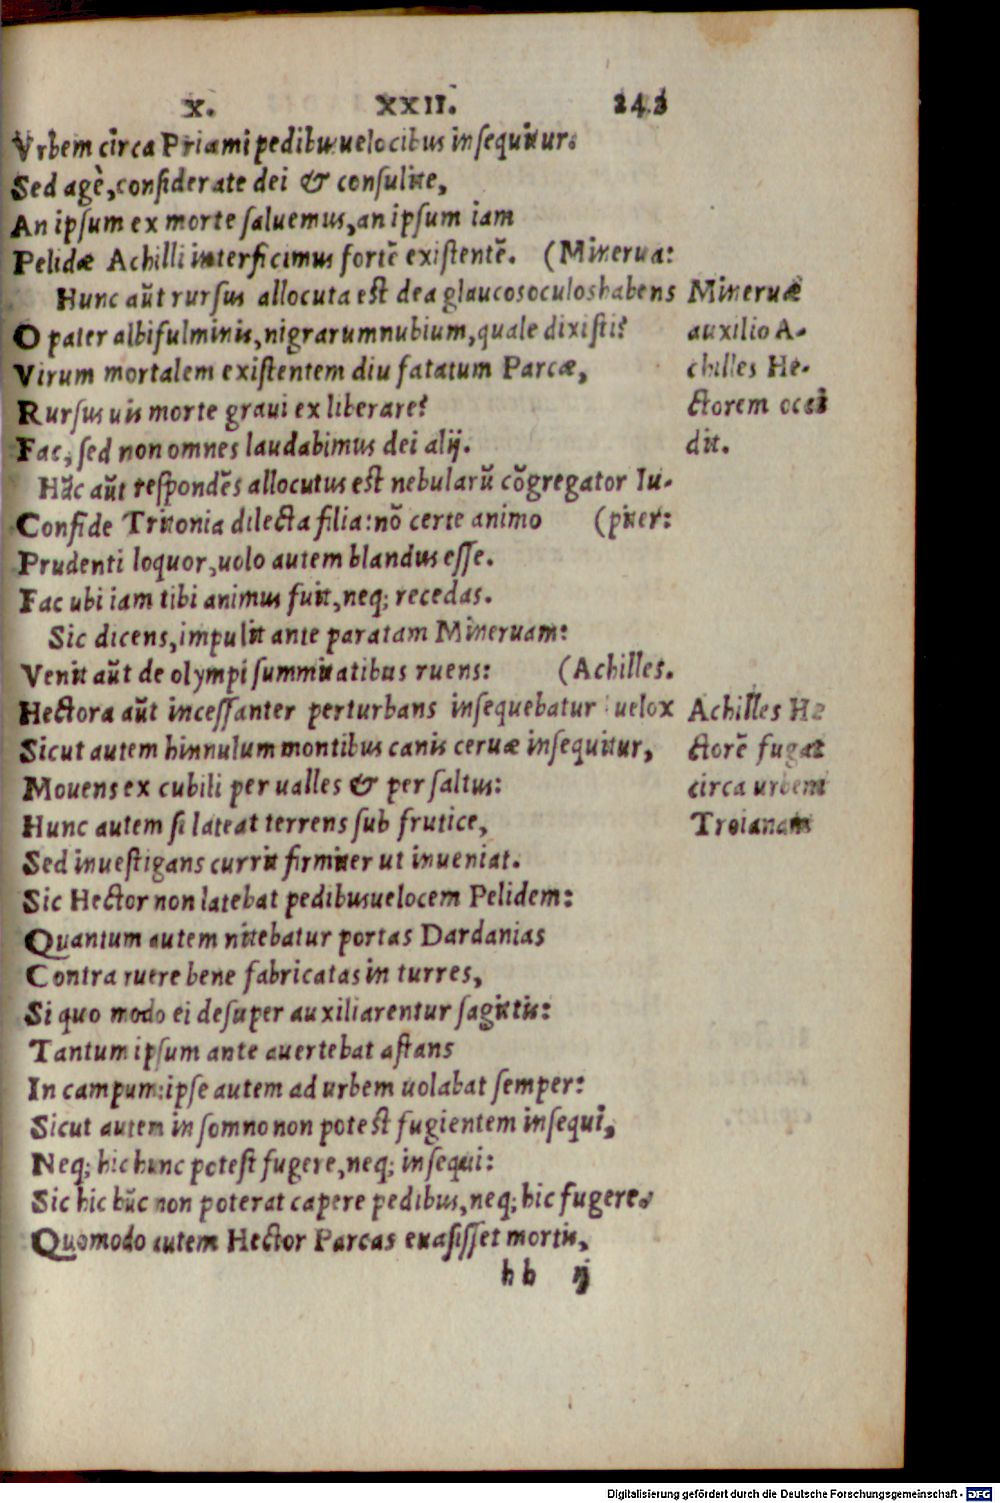 X. XXII. 243
Vrbem circa Priami pedibus uelocibus insequitur.
Sed agè, considerate dei & consulite,
An ipsum ex morte saluemus, an ipsum iam
Pelidæ Achilli interficimus fortē existentē. (Minerua:
Hunc aūt rursus allocuta est dea glaucos oculos habens
O pater albifulminis, nigrarum nubium, quale dixisti?
Virum mortalem existentem diu fatatum Parcæ,
Rursus uis morte graui ex liberare?
Fac, sed non omnes laudabimus dei alij.
Hāc aūt respondēs allocutus est nebularū cōgregator Iu-
Confide Tritonia dilecta filia: nō certe animo (piter:
Prudenti loquor, uolo autem blandus esse.
Fac ubi iam tibi animus fuit, neq; recedas.
Sic dicens, impulit ante paratam Mineruam:
Venit aūt de olympi summitatibus ruens: (Achilles.
Hectora aūt incessanter perturbans insequebatur uelox
Sicut autem hinnulum montibus canis ceruæ insequitur,
Mouens ex cubili per ualles & per saltus:
Hunc autem si lateat terrens sub frutice,
Sed inuestigans currit firmiter ut inueniat.
Sic Hector non latebat pedibus uelocem Pelidem:
Quantum autem nitebatur portas Dardanias
Contra ruere bene fabricatas in turres,
Si quo modo ei desuper auxiliarentur sagittis:
Tantum ipsum ante auertebat astans
In campum: ipse autem ad urbem uolabat semper:
Sicut autem in somno non potest fugientem insequi,
Neq; hic hunc potest fugere, neq; insequi:
Sic hic hūc non poterat capere pedibus, neq; hic fugere.
Quomodo autem Hector Parcas euasisset mortis,
hh ij
Mineruæ
auxilio A-
chilles He-
ctorem occi
dit.
Achilles He
ctorē fugat
circa urbem
Troianam
Digitalisierung gefördert durch die Deutsche Forschungsgemeinschaft - DFG